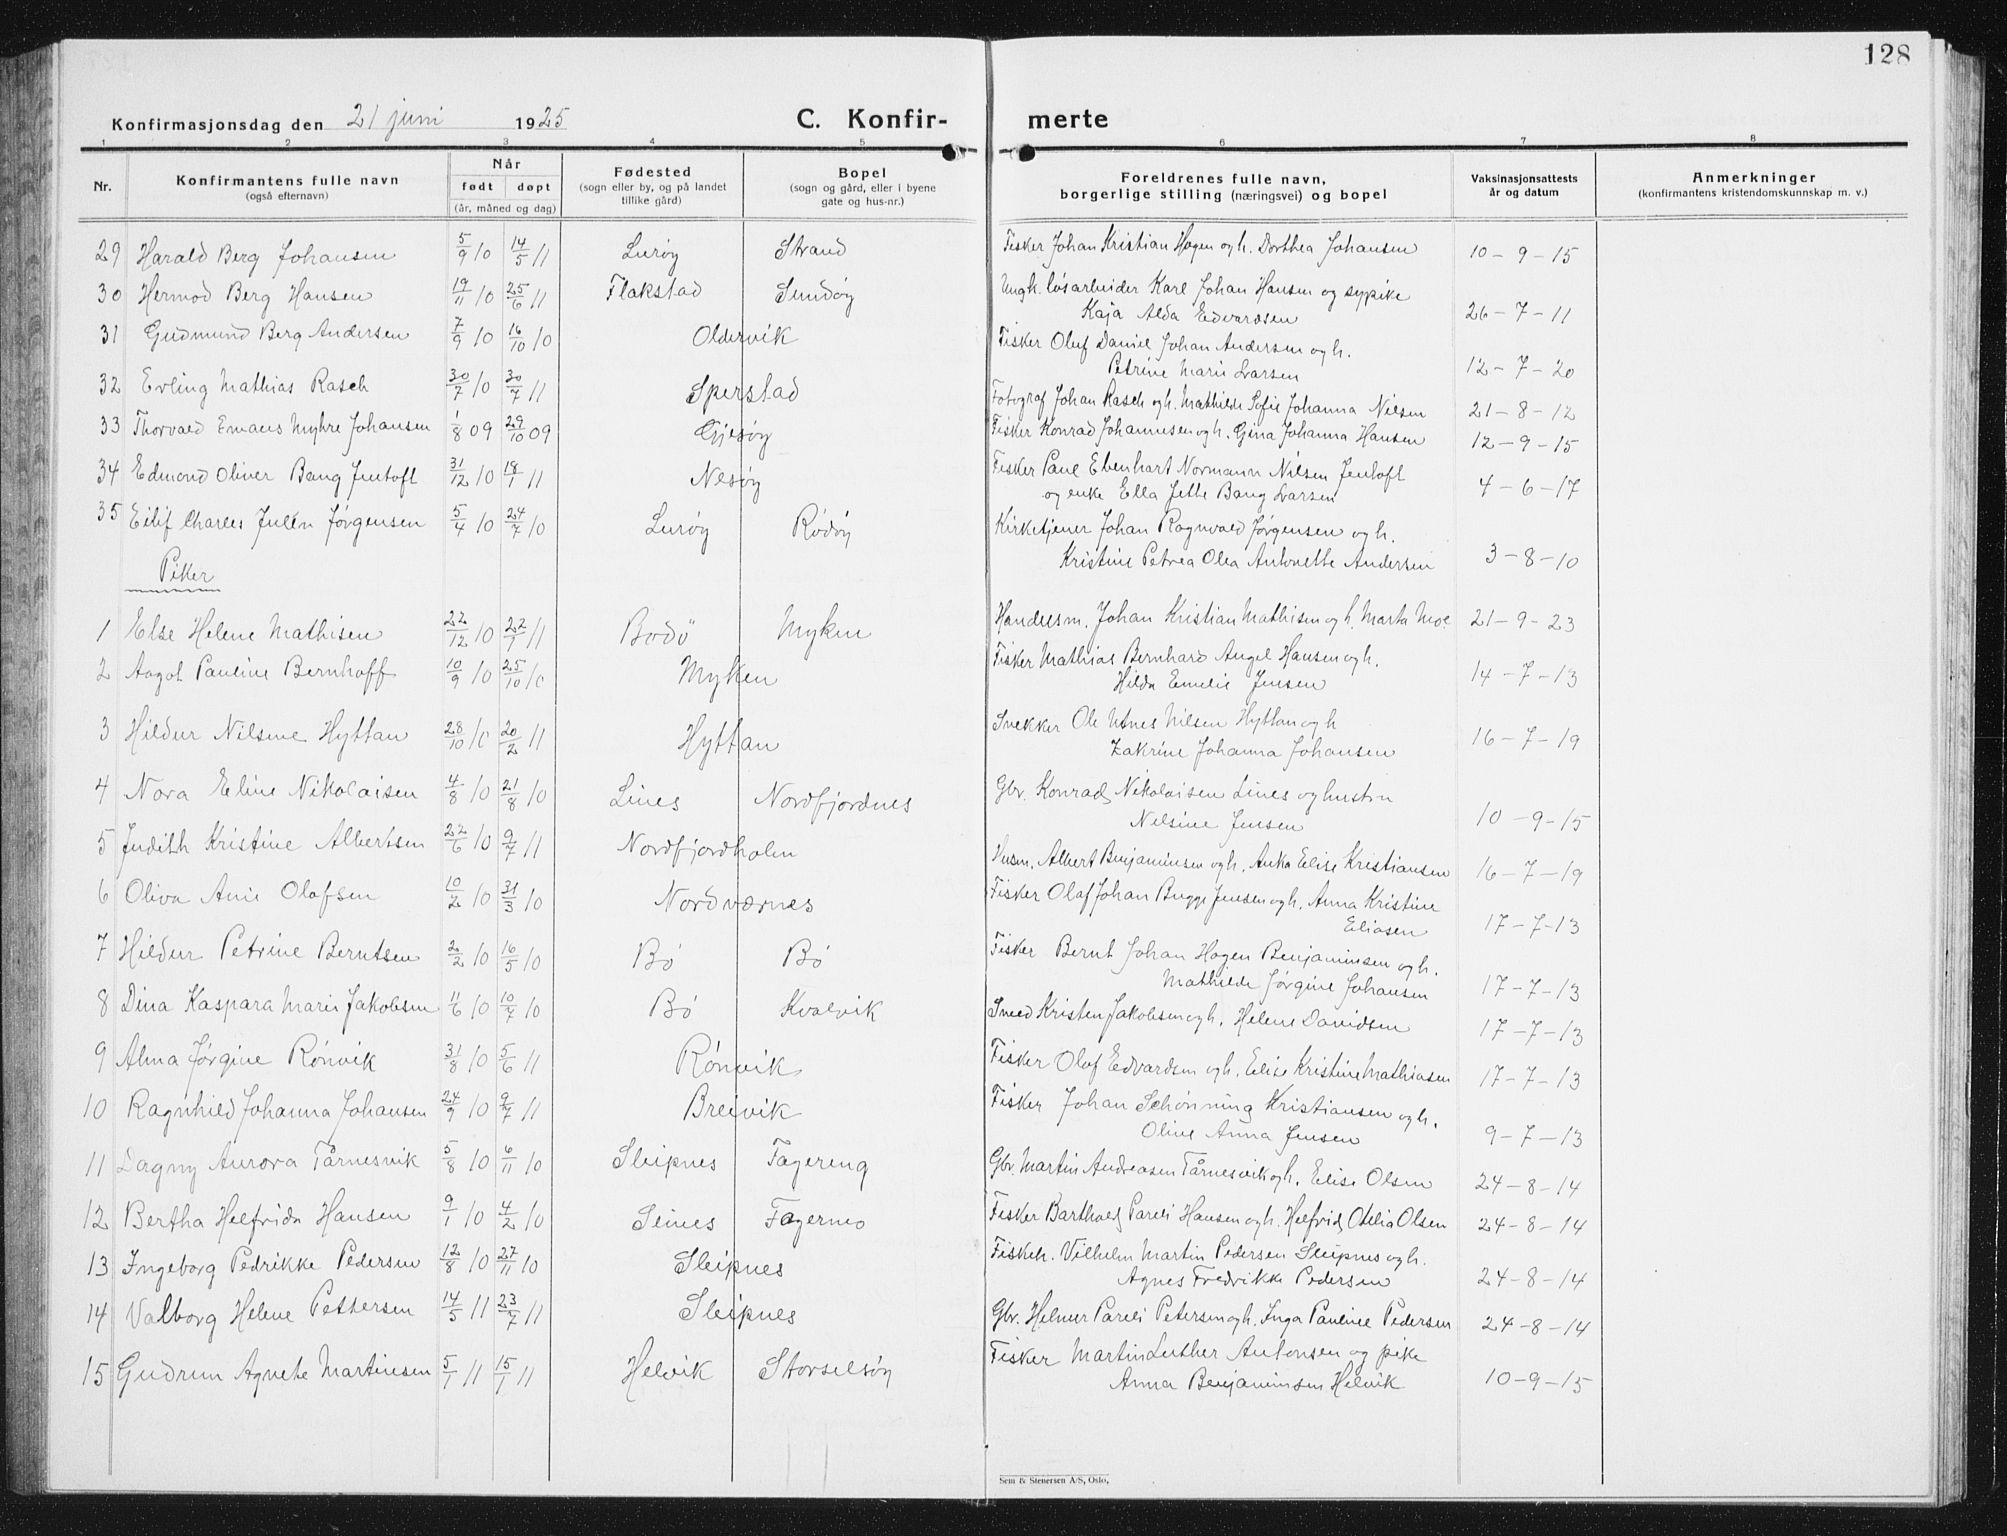 128
Konfirmasjonsdag den 21 juni 1925 C. Konfir- merte
1 2 3 4 5 6 7 8
Nr. Konfirmantens fulle navn (også efternavn) Når født døpt (år, måned og dag) Fødested (sogn eller by, og på landet tillike gård) Bopel (sogn og gård, eller i byene gate og hus-nr.) Foreldrenes fulle navn, borgerlige stilling (næringsvei) og bopel Vaksinasjonsattests år og datum Anmerkninger (konfirmantens kristendomskunnskap m. v.)
29 Harald Berg Johansen 5/9 10 14/5 11 Lurøy Strand Fisker Johan Kristian Hagen og h. Dorthea Johansen 10-9-15
30 Hermod Berg Hansen 19/11 10 25/6 11 Flakstad Sundøy Ungk. løsarbeider Karl Johan Hansen og sypike
Kaja Alda Edvardsen 26-7-11
31 Gudmund Berg Andersen 7/9 10 16/10 10 Oldervik Fisker Oluf Daniel Johan Andersen og h.
Petrine Marie Larsen 12-7-20
32 Erling Mathias Rasch 30/7 10 30/7 11 Sperstad Fotograf Johan Rasch og h. Mathilde Sofie Johanna Nilsen 21-8-12
33 Thorvald Emaus Myhre Johansen 1/8 09 29/10 09 Gjesøy Fisker Konrad Johannesen og h. Gina Johanna Hansen 12-9-15
34 Edmond Oliver Bang Jentoft 31/12 10 18/1 11 Nesøy Fisker Paul Ebenhart Normann Nilsen Jentoft
og enke Ella Jette Bang Larsen 4-6-17
35 Eilif Charles Julén Jørgensen 5/4 10 24/7 10 Lurøy Rødøy Kirketjener Johan Ragnvald Jørgensen og h.
Kristine Petrea Olea Antonette Andersen 3-8-10
Piker
1 Else Helene Mathisen 22/12 10 22/1 11 Bodö Myken Handelsm. Johan Kristian Mathisen og h. Marta Moe 21-9-23
2 Aagot Pauline Bernhoff 10/9 10 25/10 10 Myken Fisker Mathias Bernhard Angel Hansen og h.
Hilda Emelie Jensen 14-7-13
3 Hildur Nilsine Hyttan 28/10 10 20/2 11 Hyttan Snekker Ole Utnes Nilsen Hyttan og h
Zakrine Johanna Johansen 16-7-19
4 Nora Eline Nikolaisen 4/8 10 21/8 10 Lines Nordfjordnes Gbr. Konrad Nikolaisen Lines og hustru
Nilsine Jensen 10-9-15
5 Judith Kristine Albertsen 22/6 10 9/7 11 Nordfjordholm Husm. Albert Benjaminsen og h. Anka Elise Kristiansen 16-7-19
6 Oliva Anie Olafsen 10/2 10 31/3 10 Nordværnes Fisker Olaf Johan Bugge Jensen og h. Anna Kristine
Eliasen 17-7-13
7 Hildur Petrine Berntsen 2/2 10 16/5 10 Bø Bø Fisker Bernt Johan Hagen Benjaminsen og h.
Mathilde Jørgine Johansen 17-7-13
8 Dina Kaspara Marie Jakobsen 11/6 10 10/7 10 Bø Kvalvik Smed Kristen Jakobsen og h. Helene Davidsen 17-7-13
9 Alma Jørgine Rønvik 31/8 10 5/6 11 Rønvik Fisker Olaf Edvardsen og h. Elise Kristine Mathiasen 17-7-13
10 Ragnhild Johanna Johansen 24/9 10 9/7 11 Breivik Fisker Johan Schønning Kristiansen og h.
Oline Anna Jensen 9-7-13
11 Dagny Aurora Tårnesvik 5/8 10 6/11 10 Sleipnes Fagereng Gbr. Martin Andreasen Tårnesvik og h. Elise Olsen 24-8-14
12 Bertha Helfrida Hansen 9/1 10 4/2 10 Seines Fagermo Fisker Barthold Pareli Hansen og h. Helfrid Otelia Olsen 24-8-14
13 Ingeborg Pedrikke Pedersen 12/8 10 27/11 10 Sleipnes Fisker. Vilhelm Martin Pedersen Sleipnes og h.
Agnes Fredrikke Pedersen 24-8-14
14 Valborg Helene Pettersen 14/5 11 23/7 11 Sleipnes Gbr. Helmer Pareli Petersen og h. Inga Pauline Pedersen 24-8-14
15 Gudrun Agnete Martinsen 5/1 11 15/1 11 Helvik Storselsøy Fisker Martin Luther Antonsen og pike
Anna Benjaminsen Helvik 10-9-15
Sem & Stenersen A/S, Oslo.